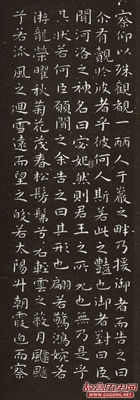 察仰以殊觀覩一麗人于巖之畔乃援御者而告之曰
尒有覿於彼者乎彼何人斯若此之豔也御者對曰臣
聞河洛之神名曰宓妃然則君王之所見也無乃是乎
其狀若何臣願聞之余告之曰其形也翩若驚鴻婉若
游龍榮曜秋菊華茂春松髣髴兮若輕雲之蔽月飄飖
兮若流風之迴雪遠而望之皎若太陽升朝霞迫而察